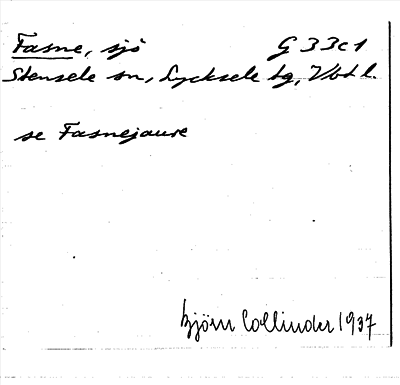 Fasne, sjö G 33c1
Stensele sn, Lycksele tg, Vbtl.
se Fasnejaure
Björn Collinder 1937